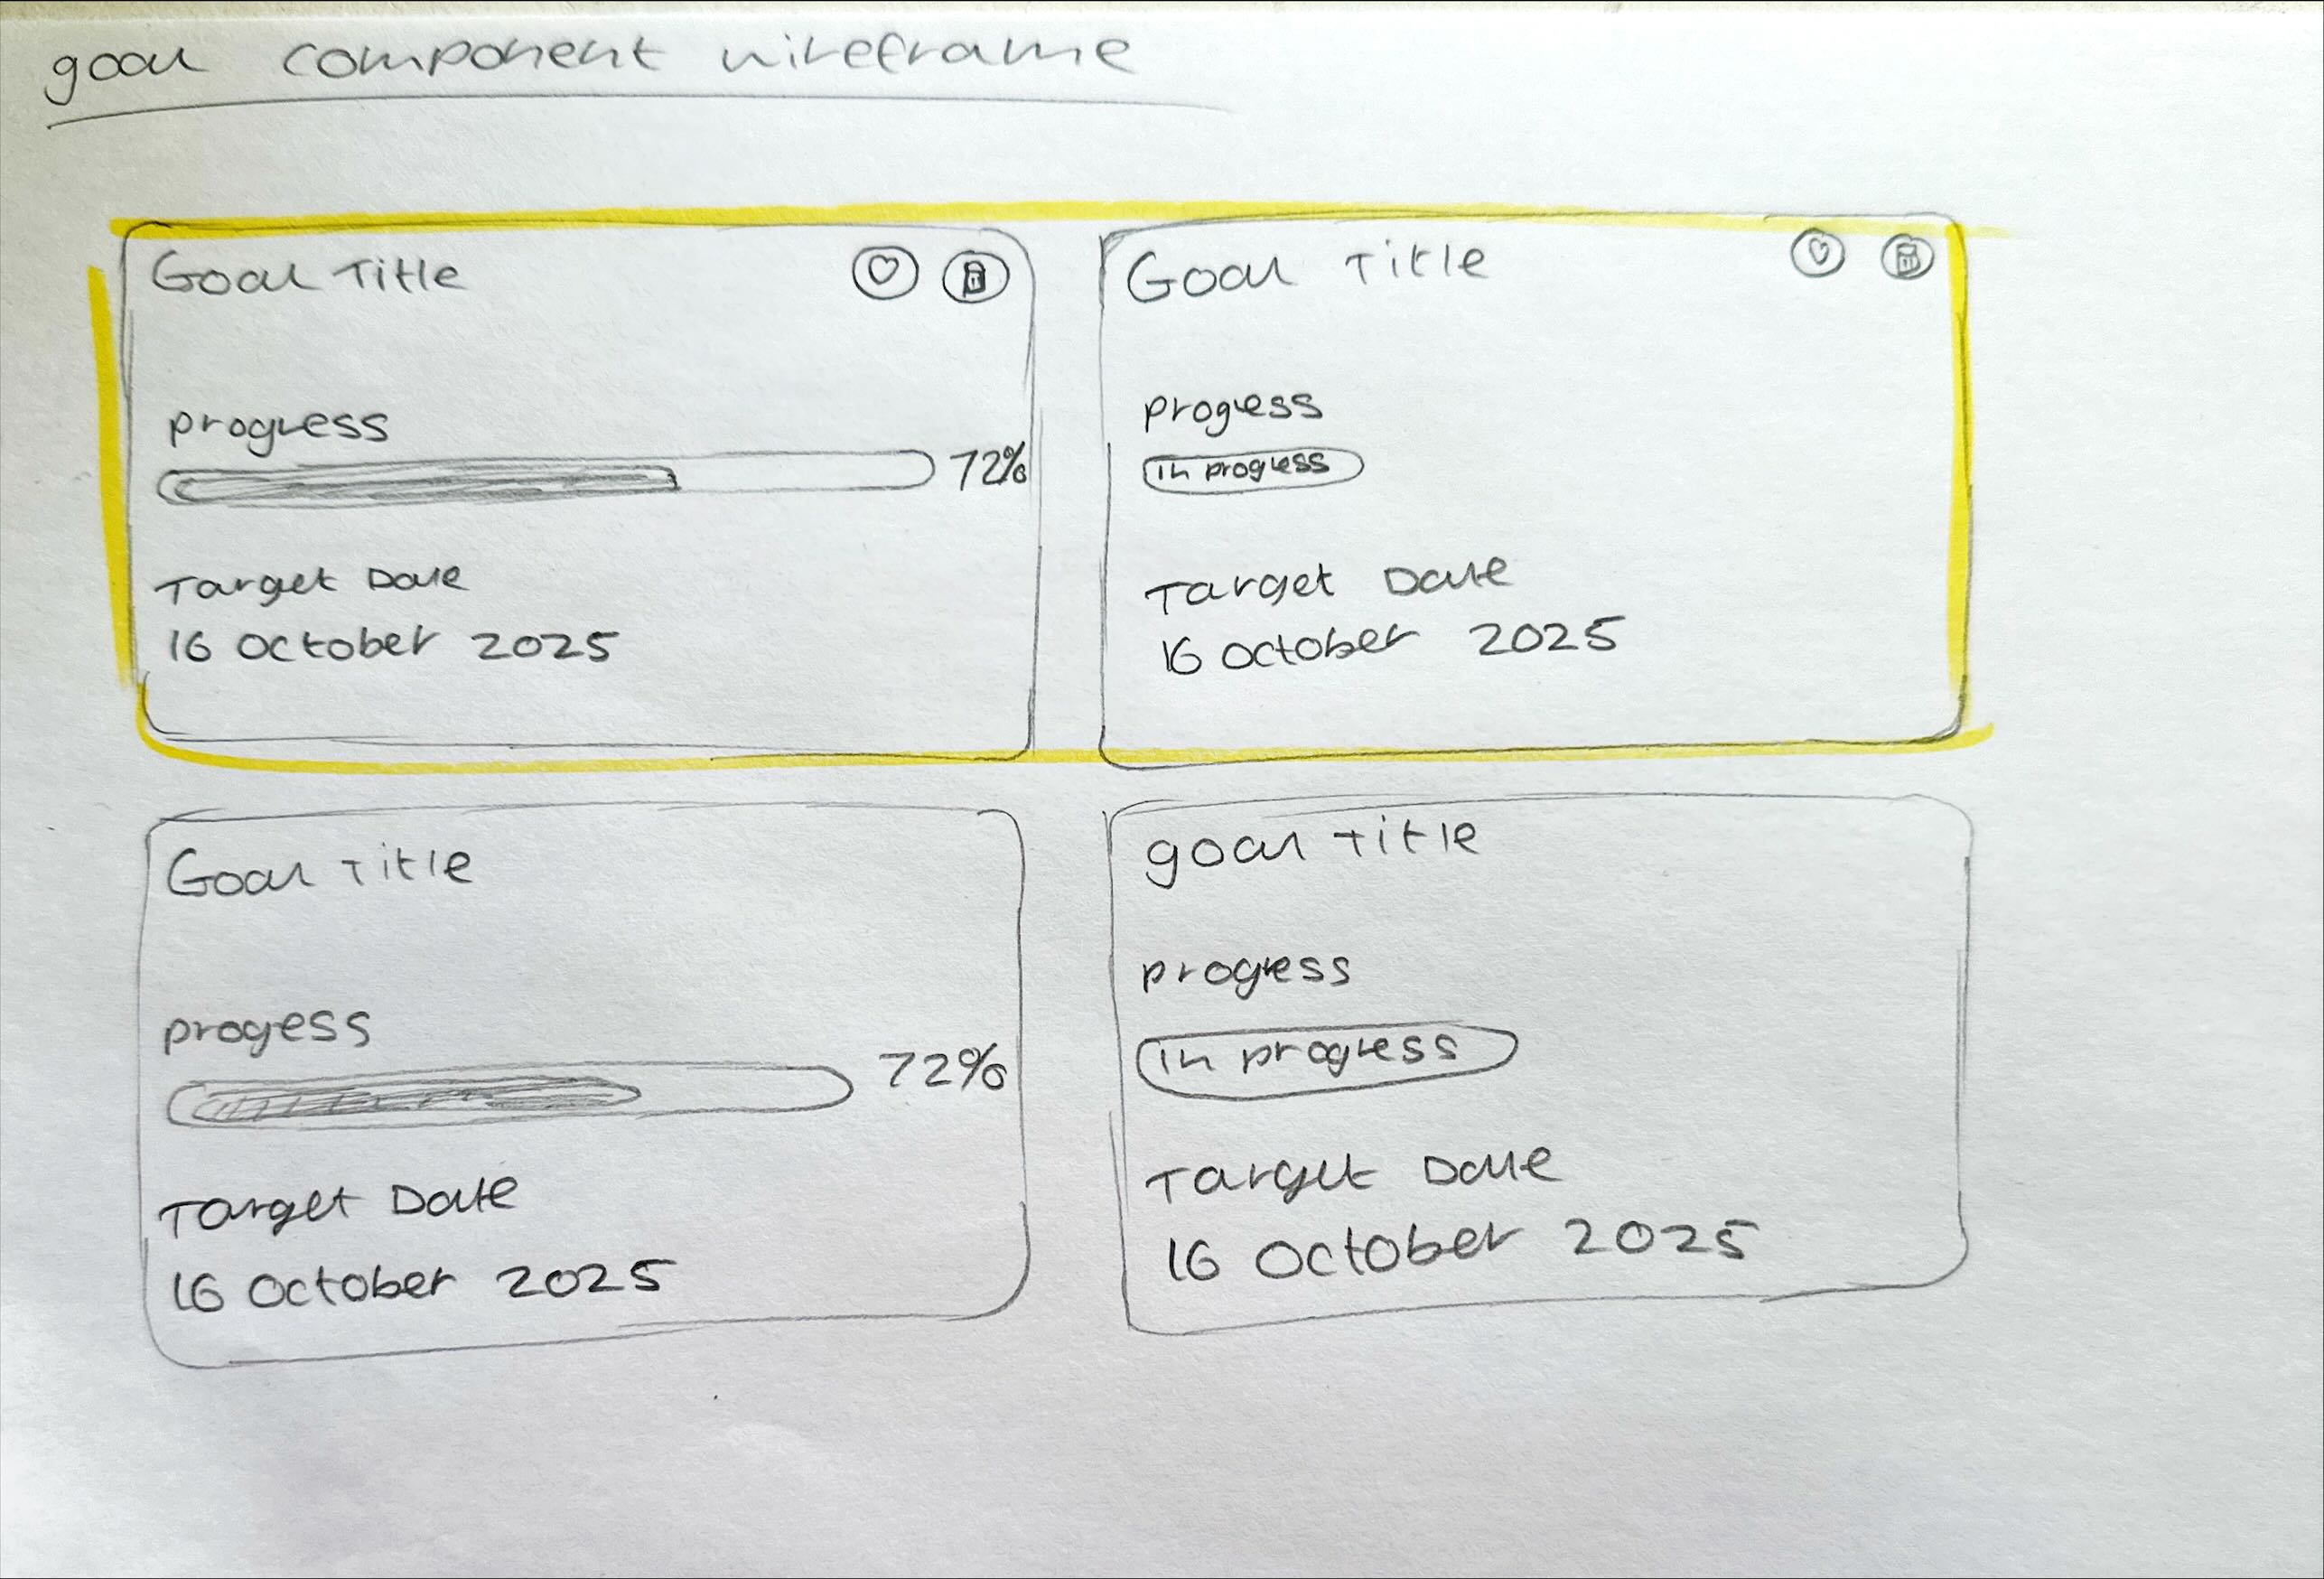 goal component wireframe
Goal Title
progress
72%
Target Date
16 October 2025
Goal Title
progress
in progress
Target Date
16 October 2025
Goal Title
progess
72%
Target Date
16 October 2025
goal Title
progress
in progress
Target Date
16 October 2025